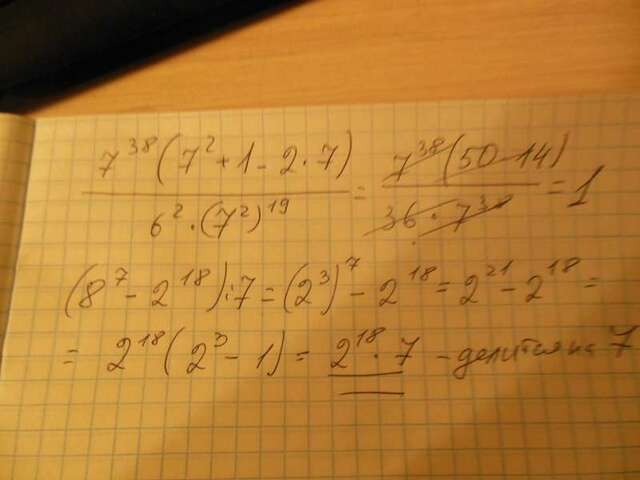 7³⁸(7² + 1 - 2·7) / 6²·(7²)¹⁹ = 7³⁸(50-14) / 36·7³⁸ = 1
(8⁷ - 2¹⁸):7 = (2³)⁷ - 2¹⁸ = 2²¹ - 2¹⁸ =
= 2¹⁸(2³ - 1) = 2¹⁸·7 - делится на 7